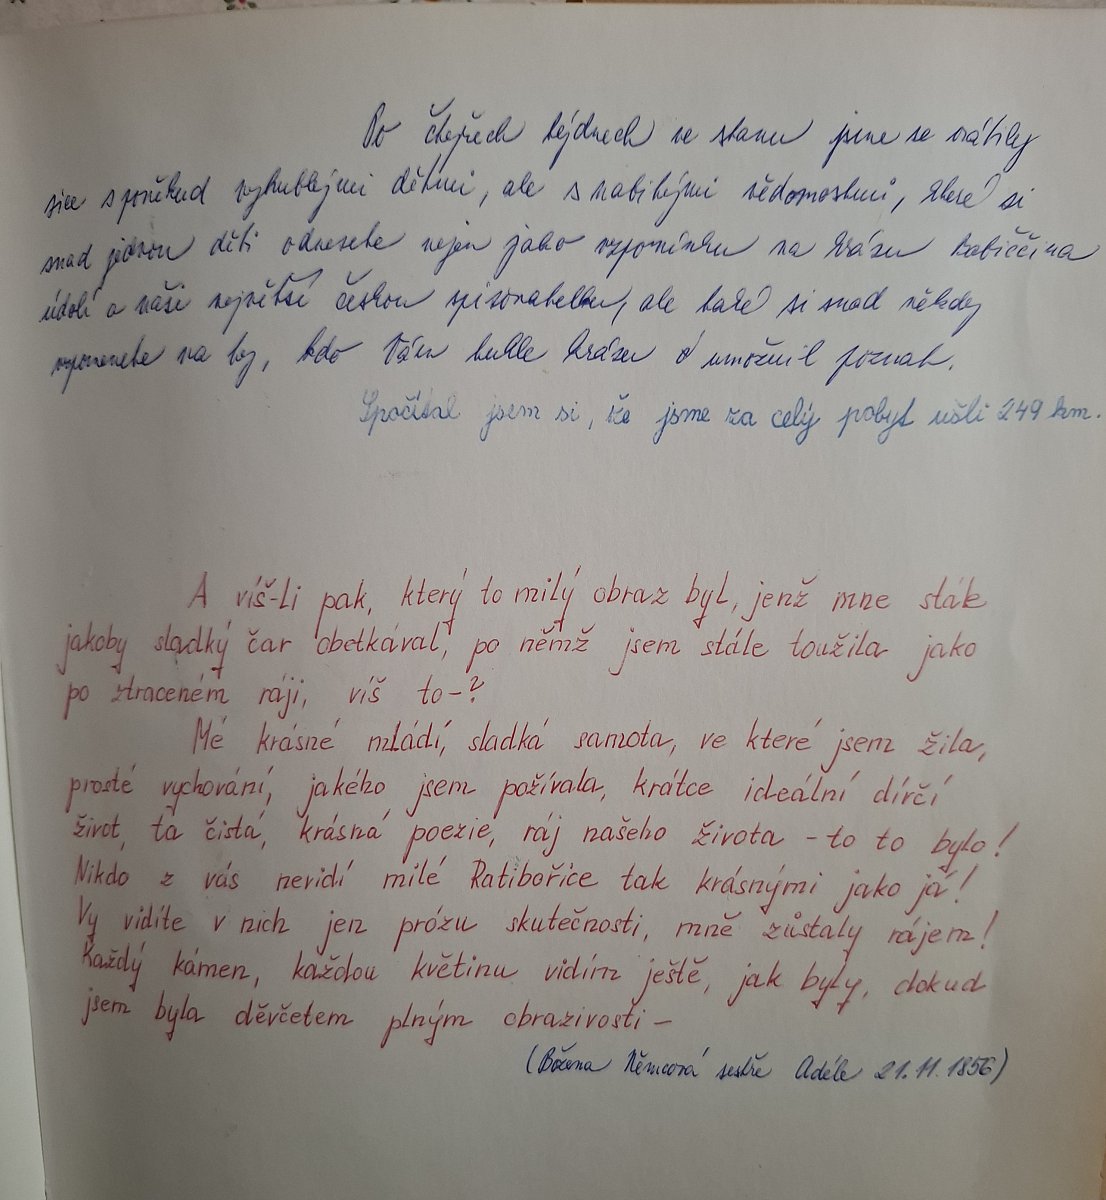 Po čtyřech týdnech ve stanu jsme se vrátily
sice s poněkud vyhublejmi dětmi, ale s nabitými vědomostmi, které si
snad jednou děti odnesete nejen jako vzpomínku na krásu Babiččina
údolí a naši největší českou spisovatelku, ale také si snad někdy
vzpomenete na ty, kdo Vám tuhle krásu umožnil poznat.
Spočítal jsem si, že jsme za celý pobyt ušli 249 km.
A víš-li pak, který to milý obraz byl, jenž mne sták
jakoby sladký čar obetkával, po němž jsem stále toužila jako
po ztraceném ráji, víš to-?
Mé krásné mládí, sladká samota, ve které jsem žila,
prosté vychování, jakého jsem požívala, krátce ideální dírčí
život, ta čistá, krásná poezie, ráj našeho života - to to bylo!
Nikdo z vás nevidí milé Ratibořice tak krásnými jako já!
Vy vidíte v nich jen prózu skutečnosti, mně zůstaly rájem!
Každý kámen, každou květinu vidím ještě, jak byly, dokud
jsem byla děvčetem plným obrazivosti -
(Božena Němcová sestře Adéle 21.11.1856)